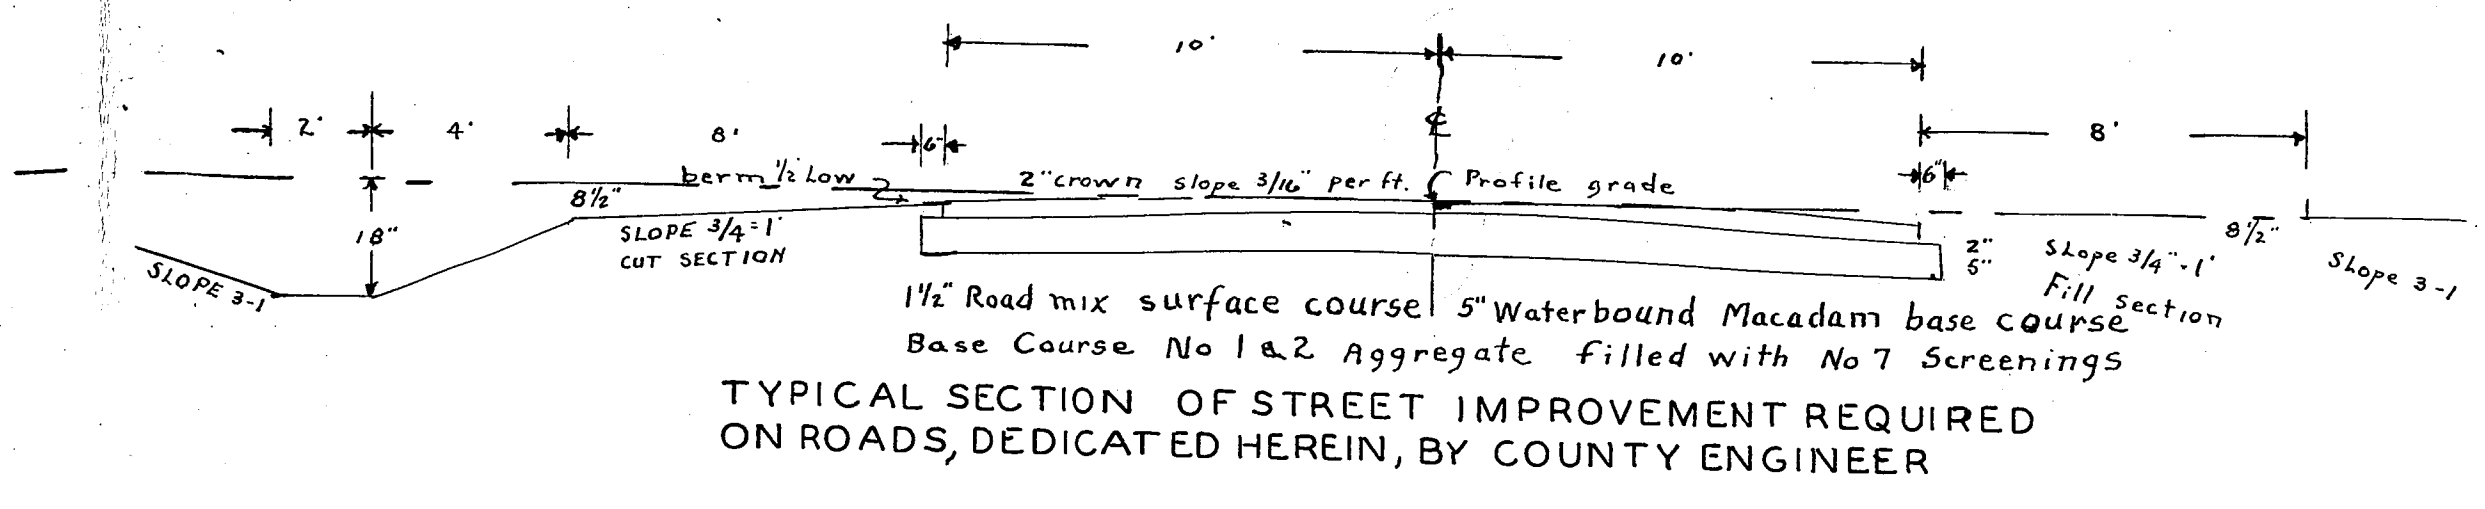 10' 10'
2' 4' 8' 6" ℄ 6" 8'
berm 1/2" Low 2" crown slope 3/16" per ft. Profile grade
8 1/2" 8 1/2"
18" SLOPE 3/4"=1'
CUT SECTION
SLOPE 3-1
2"
5"
Slope 3/4"-1'
Fill section
Slope 3-1
1 1/2" Road mix surface course 5" Waterbound Macadam base course
Base Course No 1 & 2 Aggregate filled with No 7 Screenings
TYPICAL SECTION OF STREET IMPROVEMENT REQUIRED
ON ROADS, DEDICATED HEREIN, BY COUNTY ENGINEER